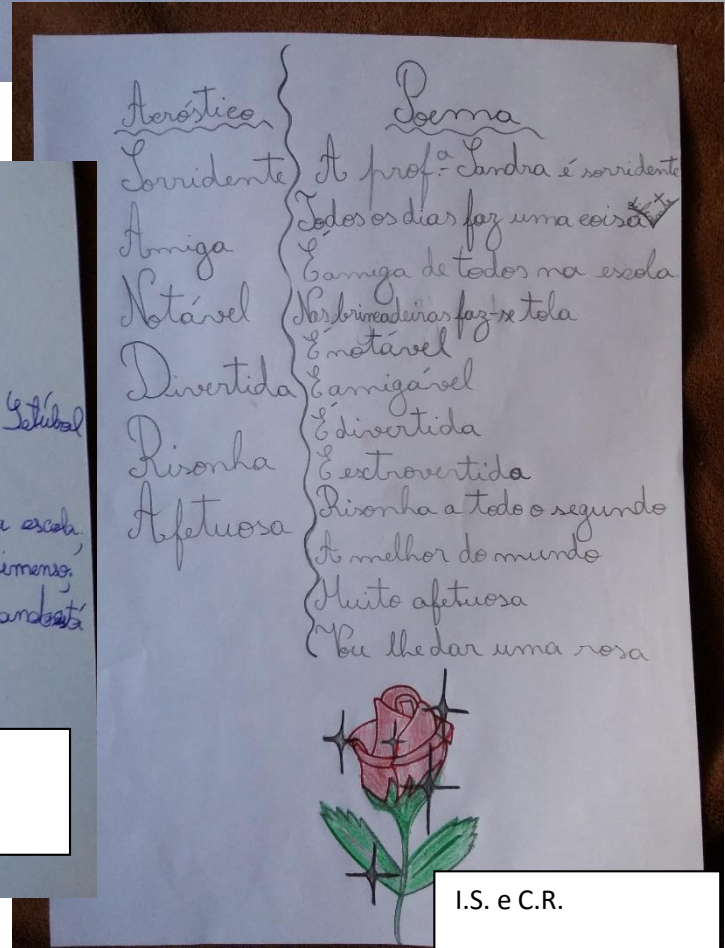 Acróstico
Sorridente
Amiga
Notável
Divertida
Risonha
Afetuosa
Poema
A prof.ª Sandra é sorridente
Todos os dias faz uma coisa
É amiga de todos na escola
Nas brincadeiras faz-se tola
É notável
É amigável
É divertida
É extrovertida
Risonha a todo o segundo
A melhor do mundo
Muito afetuosa
Vou lhe dar uma rosa
Setúbal
escola.
imenso,
I.S. e C.R.